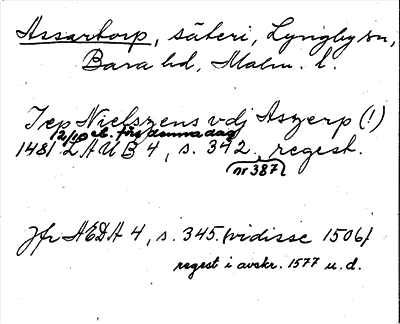 Assartorp, säteri, Lyngby sn,
Bara hd, Malm. l.
Jep Nielszens vdj Aszerp (!)
12/10 el. före denna dag
1481 LAUB 4, s. 342., regest.
nr 387
Jfr ÆDA 4, s. 345. (vidisse 1506)
regest i avskr. 1577 u. d.